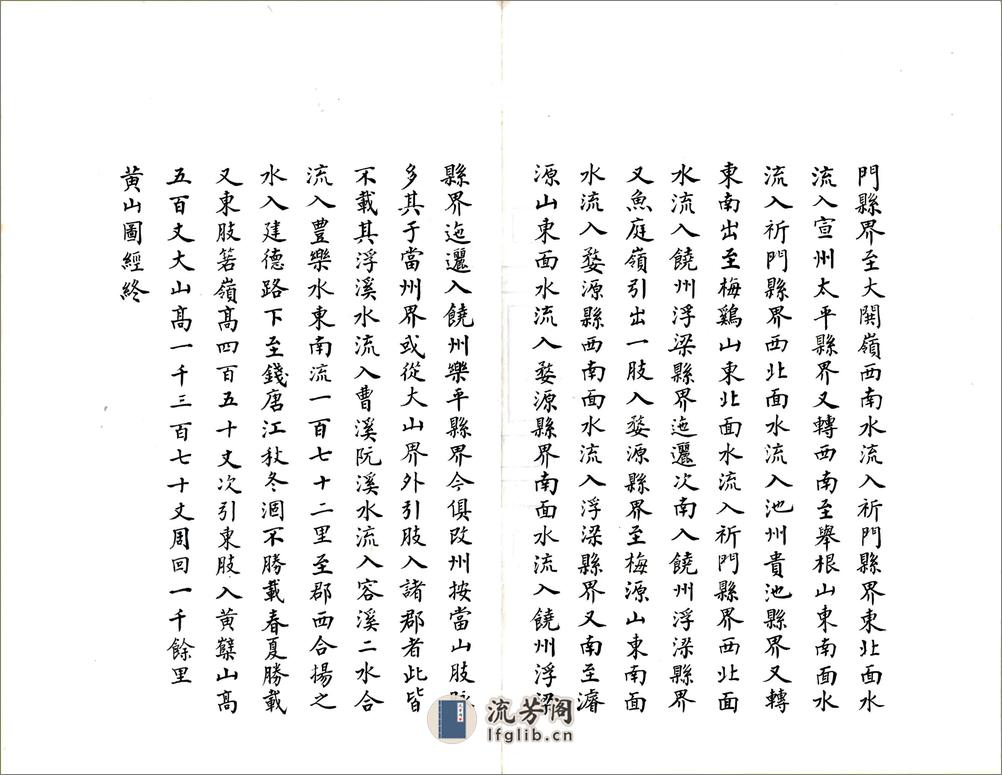 門縣界至大閧嶺西南水流入祈門縣界東北面水
流入宣州太平縣界又轉西南至舉根山東南面水
流入祈門縣界西北面水流入池州貴池縣界又轉
東南出至梅鷄山東北面水流入祈門縣界西北面
水流入饒州浮梁縣界迤邐次南入饒州浮梁縣界
又魚庭嶺引出一肢入婺源縣界至梅源山東南面
水流入婺源縣西南面水流入浮梁縣界又南至濬
源山東面水流入婺源縣界南面水流入饒州浮梁
縣界迤邐入饒州樂平縣界今俱改州按當山肢脉
多其于當州界或從大山界外引肢入諸郡者此皆
不載其浮溪水流入曹溪阮溪水流入容溪二水合
流入豐樂水東南流一百七十二里至郡西合揚之
水入建德路下至錢唐江秋冬涸不勝載春夏勝載
又東肢箬嶺高四百五十丈次引東肢入黃櫱山高
五百丈大山高一千三百七十丈周回一千餘里
黄山圖經終
流芳阁
lfglib.cn